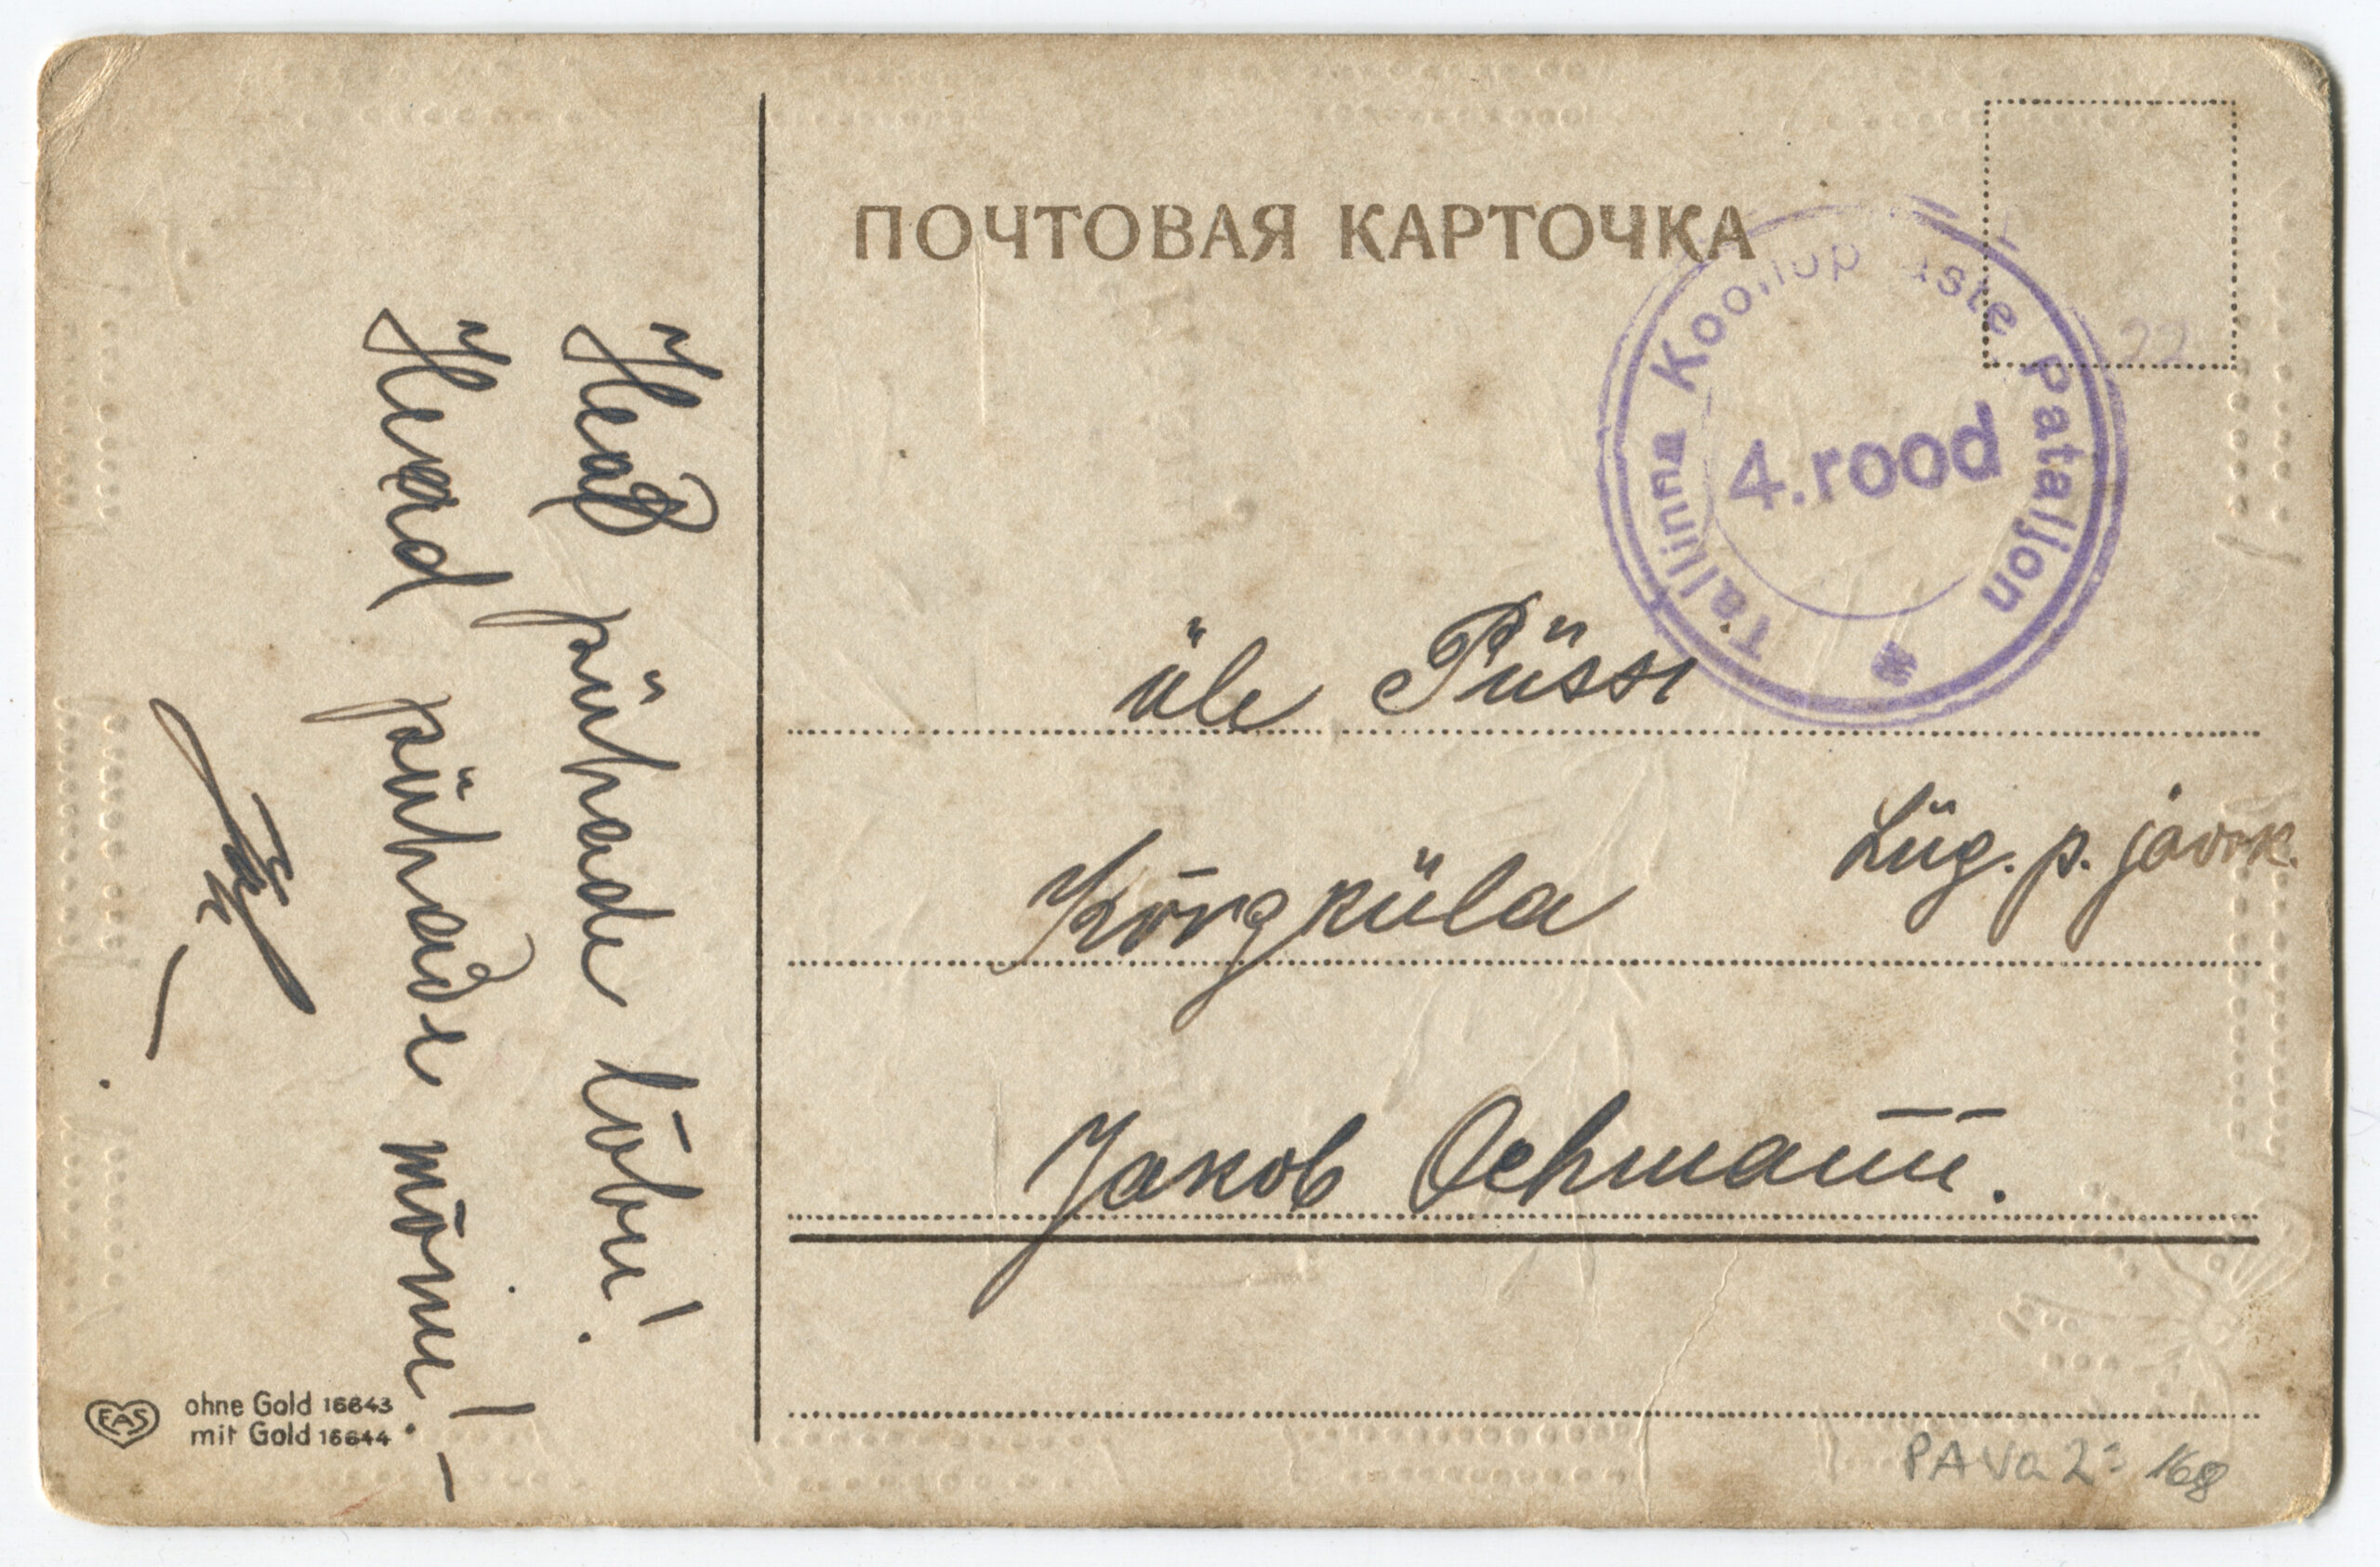 Head pühade lõbu!
Head pühade rõõmu! –
ПОЧТОВАЯ КАРТОЧКА
Tallinna Pataljon
4.rood
üle Püssi
Lüg. p. jaosk.
Kõrgküla
Jakob Oehmann.
EAS
ohne Gold 16643
mit Gold 16644
22
PAVa 2² 168